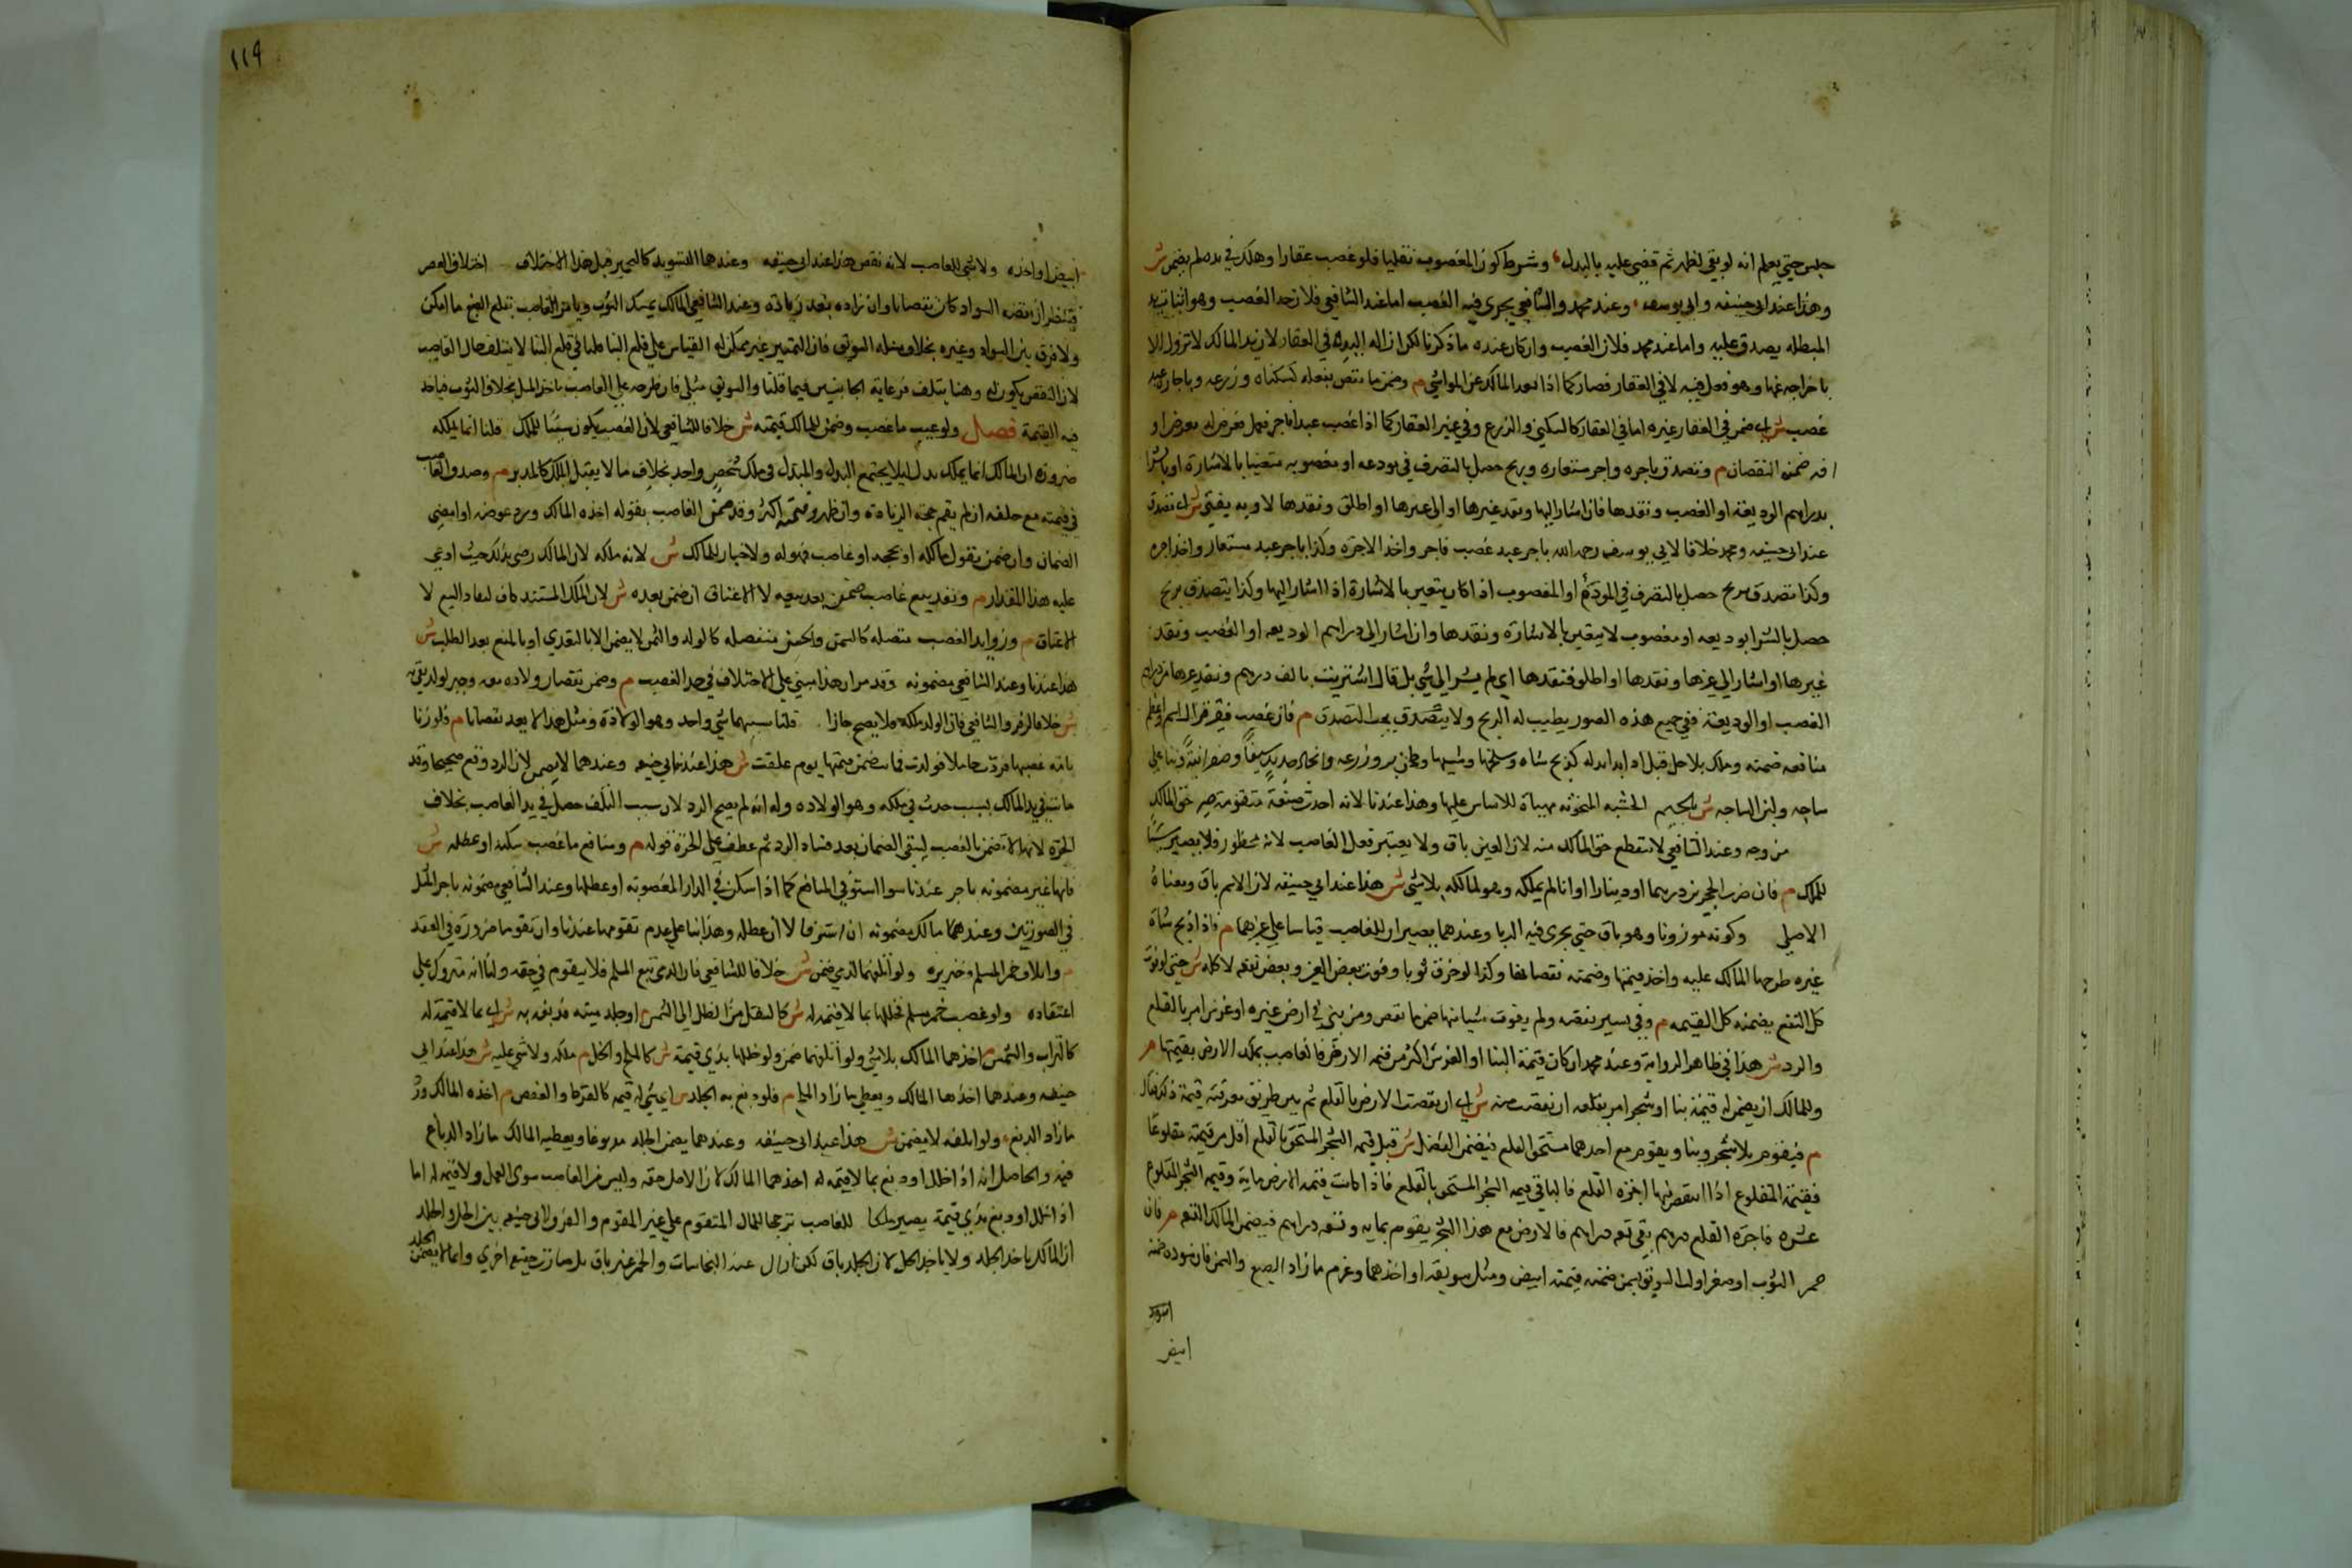 حبس حتي يعلم انه لو بقي لظهر ثم قضي عليه بالبدل وشرط كون المغصوب نقليا فلو غصب عقارا وهلك في يده لم يضمن ش
وهذا عند ابي حنيفه وابي يوسف وعند محمد والشافعي يجري فيه الغصب اما عند الشافعي فلان حد الغصب وهو اثبات اليد
المبطله يصدق عليه واما عند محمد فلان الغصب وان كان عنده ما ذكرنا لكن ازاله اليد في العقار لان يد المالك لا تزول الا
باخراجه عنها وهو فعل فيه لا في العقار فصار كما اذا بعد المالك عن المواشي م وضمن ما نقص بفعله كسكناه وزرعه وباجارة عبد
غصب ش اي ضمن في العقار وغيره اما في العقار كالسكني والزرع وفي غير العقار كما اذا غصب عبدا فاجر فعمل فعرض له مرض او
ضمن النقصان م وتصدق باجره واجر مستعاره وربح حصل بالتصرف في مودعه او مغصوبه متعينا بالاشارة او بالشرا
بدراهم الوديعة او الغصب ونقدها فان اشار اليها ونقد غيرها او الي غيرها او اطلق ونقدها لا وبه يفتي ش اي تصدق
عند ابي حنيفه ومحمد خلافا لابي يوسف رحمه الله باجر عبد غصب فاجر واخذ الاجرة وكذا باجر عبد مستعار واخذ اجره
وكذا تصدق بربح حصل بالتصرف في المودع او المغصوب اذا كان يتعين بالاشارة اذا اشار اليها وكذا يتصدق بربح
حصل بالشرا بوديعه او مغصوب لا يتعين بالاشارة ونقدها وان اشار الي دراهم الوديعه او الغصب ونقد
غيرها او اشار الي غيرها ونقدها او اطلق فنقدها اي لم يشر الي شي بل قال اشتريت بالف درهم ونقد من دراهم
الغصب او الوديعة ففي جميع هذه الصور يطيب له الربح ولا يتصدق يجب التصدق م فان غصب فغير فزال اسمه واعظم
منافعه ضمنه وملك بلا حل قبل ادا بدله كذبح شاه وسلخها وشيها وطحن بر وزرعه واتخاذ حديد سيفا وصفر انية وبنا علي
ساجه ولبن الساجه ش بالجيم الخشبه المنحوته مهياة للاساس عليها وهذا عندنا لانه احدث صنعة متقومة صير حق المالك
من وجه وعند الشافعي لا ينقطع حق المالك منه لان العين باق ولا يعتبر فعل الغاصب لانه محظور فلا يصير سببا
للملك م فان ضرب الحجرين درهما او دينارا او انا لم يملكه وهو لمالكه بلا شي ش هذا عند ابي حنيفه لان الاسم باق ومعناه
الاصلي وكونه موزونا وهو باق حتي يجري فيه الربا وعندهما يصير ان للغاصب قياسا علي غيرهما م فاذا ذبح شاة
غيره طرحها المالك عليه واخذ قيمتها وضمنه نقصانها وكذا لو خرق ثوبا وفوت بعض العين وبعض نفعه لا كله ش حتي لو فوت
كل النفع يضمنه كل القيمه م وفي يسير نقصه ولم يفوت شيا منها ضمن ما نقص ومن بني في ارض غيره او غرس امر بالقلع
والرد ش هذا في ظاهر الرواية وعند محمد ان كان قيمة البنا او الغرس اكثر من قيمه الارض فالغاصب يملك الارض بقيمتها م
وللمالك ان يضمن له قيمة بنا او شجر امر بقلعه ان نقصت به ش اي ان نقصت الارض بالقلع ثم بين طريق معرفة قيمة ذلك فقال
م فيقوم بلا شجر وبنا ويقوم مع احدهما مستحق القلع فيضمن الفضل ش قيل قيمه الشجر المستحق بالقلع اقل من قيمته مقلوعا
فقيمة المقلوع اذا انتقص منها اجره القلع فالباقي قيمه الشجر المستحق بالقلع فاذا كانت قيمه الارض ماية وقيمه الشجر المقلوع
عشره فاجرة القلع درهم بقي تسعه دراهم فالارض مع هذا الشجر يقوم بمايه وتسعه دراهم فيضمن المالك التسعه م فان
حمر الثوب او صفر او لت السويق بسمن ضمنه قيمته ابيض ومثل سويقه او اخذهما وغرم ما زاد الصبغ والسمن فان سوده ضمنه
اسود
ابيض
١١٩
ابيض او اخذه ولا شي للغاصب لانه نقص هذا عند ابي حنيفه وعندهما التسويد كالتحمير قيل هذا الاختلاف اختلاف العصر
فينظر ان نقصه السواد كان نقصانا وان زاده يعد زيادة وعند الشافعي المالك يمسك الثوب ويامر الغاصب بقلع الصبغ ما امكن
ولا فرق بين السواد وغيره بخلاف مسله السويق فان التمييز غير ممكن له القياس علي قلع البنا قلنا في قلع البنا لا يتلف مال الغاصب
لان النقص يكون له وهنا يتلف فرعاية الجانبين فيما قلنا والسويق مثلي فان طرحه علي الغاصب ياخذ المثل بخلاف الثوب فياخذ
فيه القيمة فصل ولو غيب ما غصب وضمن المالك قيمته ش خلافا للشافعي لان الغصب لا يكون سببا للملك قلنا انما يملكه
ضرورة ان المالك انما يملك بدله ليلا يجتمع البدل والمبدل في ملك شخص واحد بخلاف ما لا يقبل الملك كالمدبر م وصدق الغاصب
في قيمته مع حلفه ان لم يقم حجة الزيادة وان ظهر وقيمته اكثر وقد ضمن الغاصب بقوله اخذه المالك ورد عوضه او امضي
الضمان وان ضمن بقول مالكه او بحجه او غاصب فهو له ولا خيار للمالك ش لانه ملكه لان المالك رضي بذلك حيث ادعي
عليه هذا المقدار م ونفذ بيع غاصب ضمن بعد بيعه لا الاعتاق ان ضمن بعده ش لان الملك المستند كاف لنفاذ البيع لا
الاعتاق م وزوايد الغصب متصله كالسمن والحسن منفصله كالولد والثمر لا يضمن الا بالتعدي او بالمنع بعد الطلب ش
هذا عندنا وعند الشافعي مضمونه وقد مر ان هذا مبني علي الاختلاف في حد الغصب م وضمن نقصان ولاده معه وجبر لولد بقي به
ش خلافا لزفر والشافعي فان الولد ملكه فلا يصح جابرا قلنا سببهما شي واحد وهو الولادة ومثل هذا لا يعد نقصانا م فلو زنا
بامه غصبها فردت حاملا فولدت فماتت ضمن قيمتها يوم علقت ش هذا عند ابي حنيفه وعندهما لا يضمن لان الرد وقع صحيحا وقد
ماتت في يد المالك بسبب حدث في ملكه وهو الولاده وله انه لم يصح الرد لان سبب التلف حصل في يد الغاصب بخلاف
الحرة لانها لا تضمن بالغصب ليبقي الضمان بعد فساد الرد ثم عطف علي الحرة قوله م ومنافع ما غصب سكنه او عطله ش
فانها غير مضمونه باجر عندنا سوا استوفي المنافع كما اذا سكن في الدار المغصوبه او عطلها وعند الشافعي مضمونه باجر المثل
في الصورتين وعند مالك مضمونه ان استوفا لا ان عطله وهذا بنا علي عدم تقومها عندنا وان تقومها ضرورة في العقد
م واتلاف خمر المسلم وخنزيره ولو اتلفهما لذمي ضمن ش خلافا للشافعي فان الذمي تبع المسلم فلا يتقوم في حقه ولنا انه متروك علي
اعتقاده ولو غصب خمر مسلم فخللها بما لا قيمه له ش كالنقل من الظل الي الشمس م او جلد ميته فدبغه به ش اي بما لا قيمة له
كالتراب والشمس م اخذهما المالك بلا شي ولو اتلفهما ضمن ولو خللها بذي قيمة ش كالملح والخل م ملكه ولا شي عليه ش هذا عند ابي
حنيفه وعندهما اخذها المالك ويعطي ما زاد الملح م فلو دبغ به الجلد ش اي بشي له قيمه كالقرظ والعفص م اخذه المالك ورد
ما زاد الدبغ ولو اتلفه لا يضمن ش هذا عند ابي حنيفه وعندهما يضمن الجلد مدبوغا ويعطيه المالك ما زاد الدباغ
فيه والحاصل انه اذا خلل او دبغ بما لا قيمه له اخذهما المالك لان الاصل حقه وليس من الغاصب سوي العمل ولا قيمه له اما
اذا خلل او دبغ بذي قيمة يصير ملكا للغاصب ترجيحا للمال المتقوم علي غير المتقوم والفرق لابي حنيفه بين الخل والجلد
ان المالك ياخذ الجلد ولا ياخذ الخل لان الجلد باق لكن ازال عنه النجاسات والخمر غير باق بل صارت حقيقه اخري وانما لا يضمن
الجلد